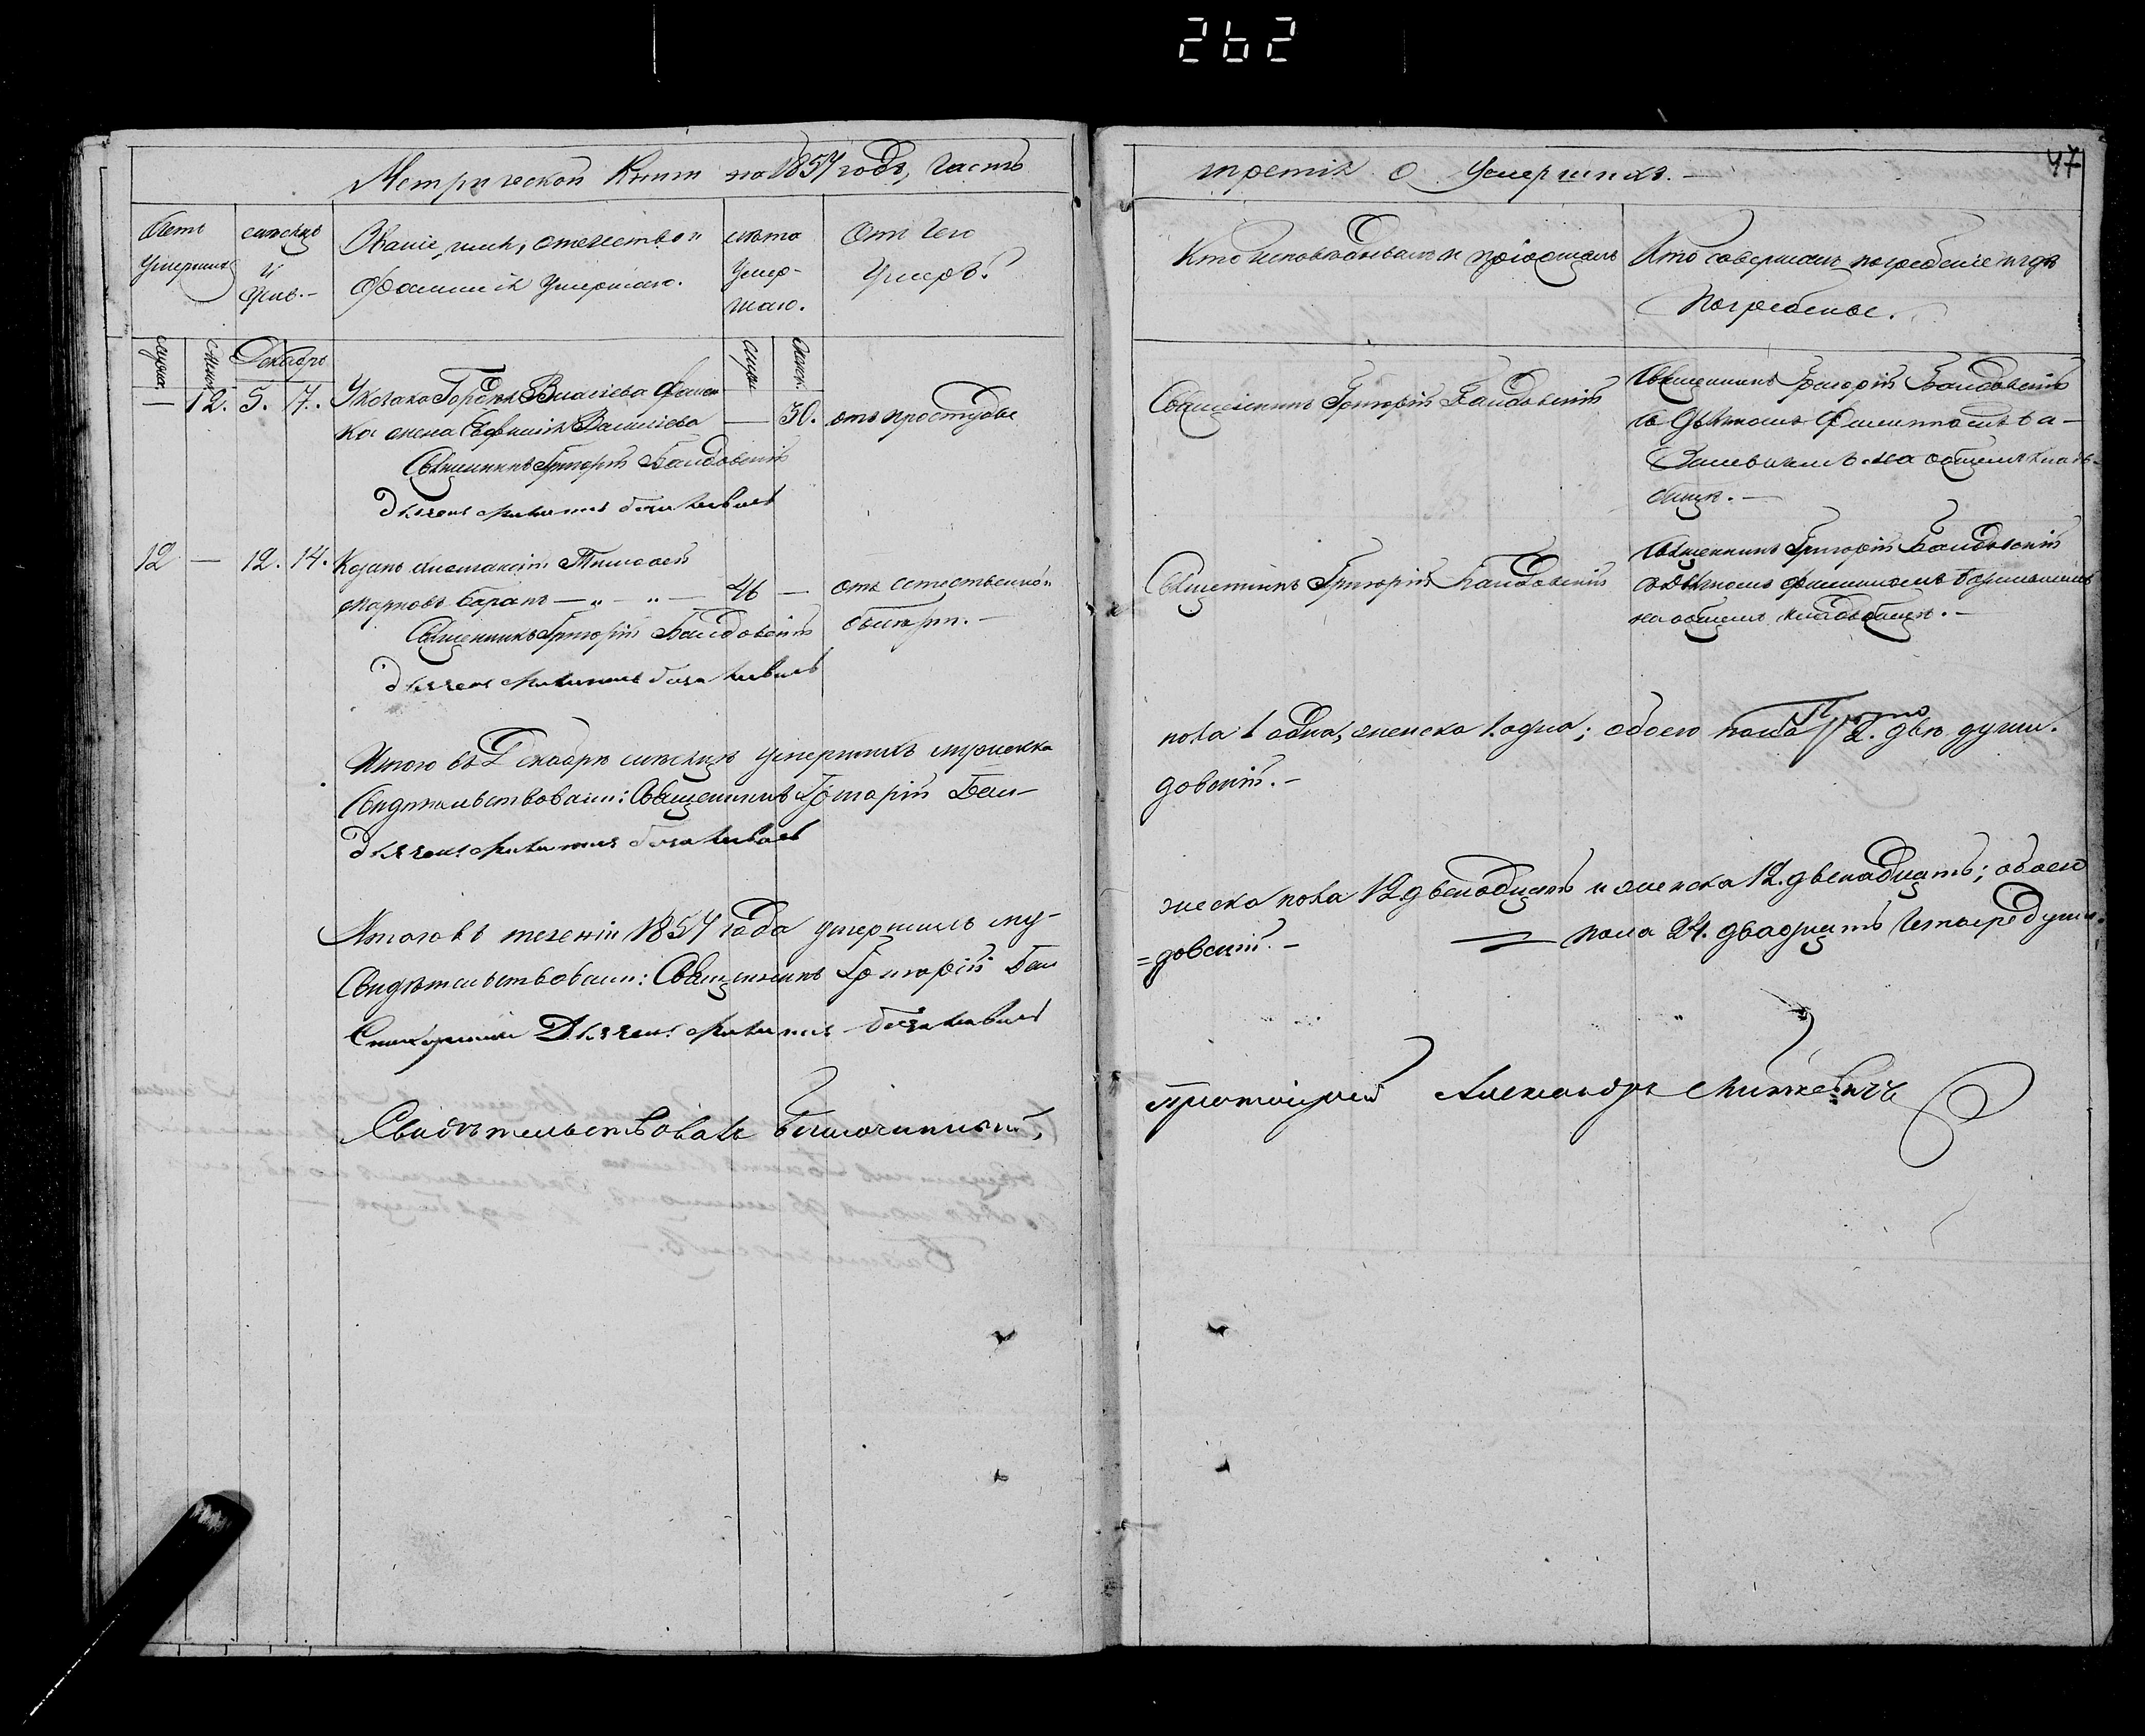 262
47
Метрической Книги на 1857 годъ, Часть
третія о Умершихъ. —
Счетъ Умершихъ
мѣсяцъ и день. —
Званіе, имя, отечество и фамилія Умершаго.
лѣта Умер-
шаго.
Отъ чего Умеръ?
Кто исповѣдывалъ и пріобщалъ
Кто совершалъ погребеніе и гдѣ
погребенъ.
Мужск.
Женск.
Декабрь
Муж.
Женск.
— 12. 5. 7. У козака Гордѣя Василіева
жена Евфимія Василіева — 30. отъ простуды
Священникъ Григорій Бандовскій
Дьячекъ
Священникъ Григорій Бандовскій
Священникъ Григорій Бандовскій
съ Дьячкомъ Филиппомъ
на общемъ клад-
бищѣ. —
12 — 12. 14. Козакъ Тимофей
Марковъ Баранъ — " — " — 46 — отъ естественной
Священникъ Григорій Бандовскій
Дьячекъ
Священникъ Григорій Бандовскій
Священникъ Григорій Бандовскій
съ Дьячкомъ Филиппомъ
на общемъ кладбищѣ. —
Итого въ Декабрѣ мѣсяцѣ умершихъ мужеска
пола 1 одна, женска 1 одна; обоего пола 2. двѣ души.
Свидѣтельствовали: Священникъ Григорій Бан-
довскій. —
Дьячекъ
Итого въ теченіи 1857 года умершихъ му-
жеска пола 12 двенадцать и женска 12. двенадцать; обоего
пола 24. двадцать четыре души.
Свидѣтельствовали: Священникъ Григорій Бан
=довскій. —
Дьячекъ
Свидѣтельствовалъ Благочинный,
Протоіерей Александръ Миткевичъ